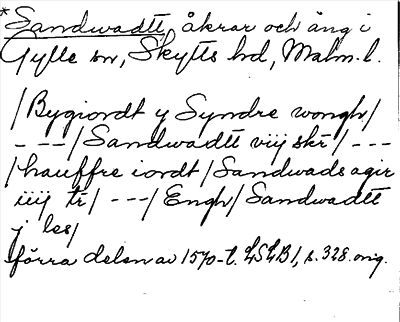 *Sandwadtt, åkrar och äng i
Gylle sn, Skytts hd, Malm. l.
/Bygiordt y Syndre wongh/
- - -/Sandwadtt viij skr/ - - -
/hauffre iordt/Sandwads agir
iiij tr/ - - -/Engh/Sandwadtt
j les/
förra delen av 1570-t. LSLB1, s. 328. orig.